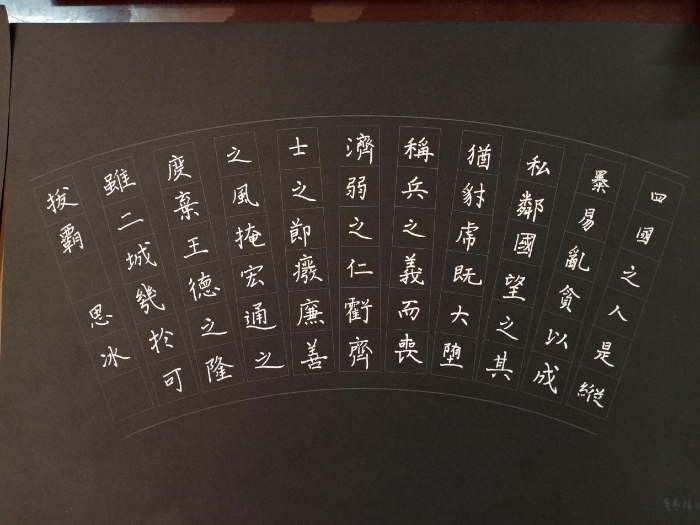 四国之人是縱
暴易亂貪以成
私鄰國望之其
猶豺虎既大墮
稱兵之義而喪
濟弱之仁虧齊
士之節癈廉善
之風掩宏通之
度棄王德之隆
雖二城幾於可
拔霸
思冰